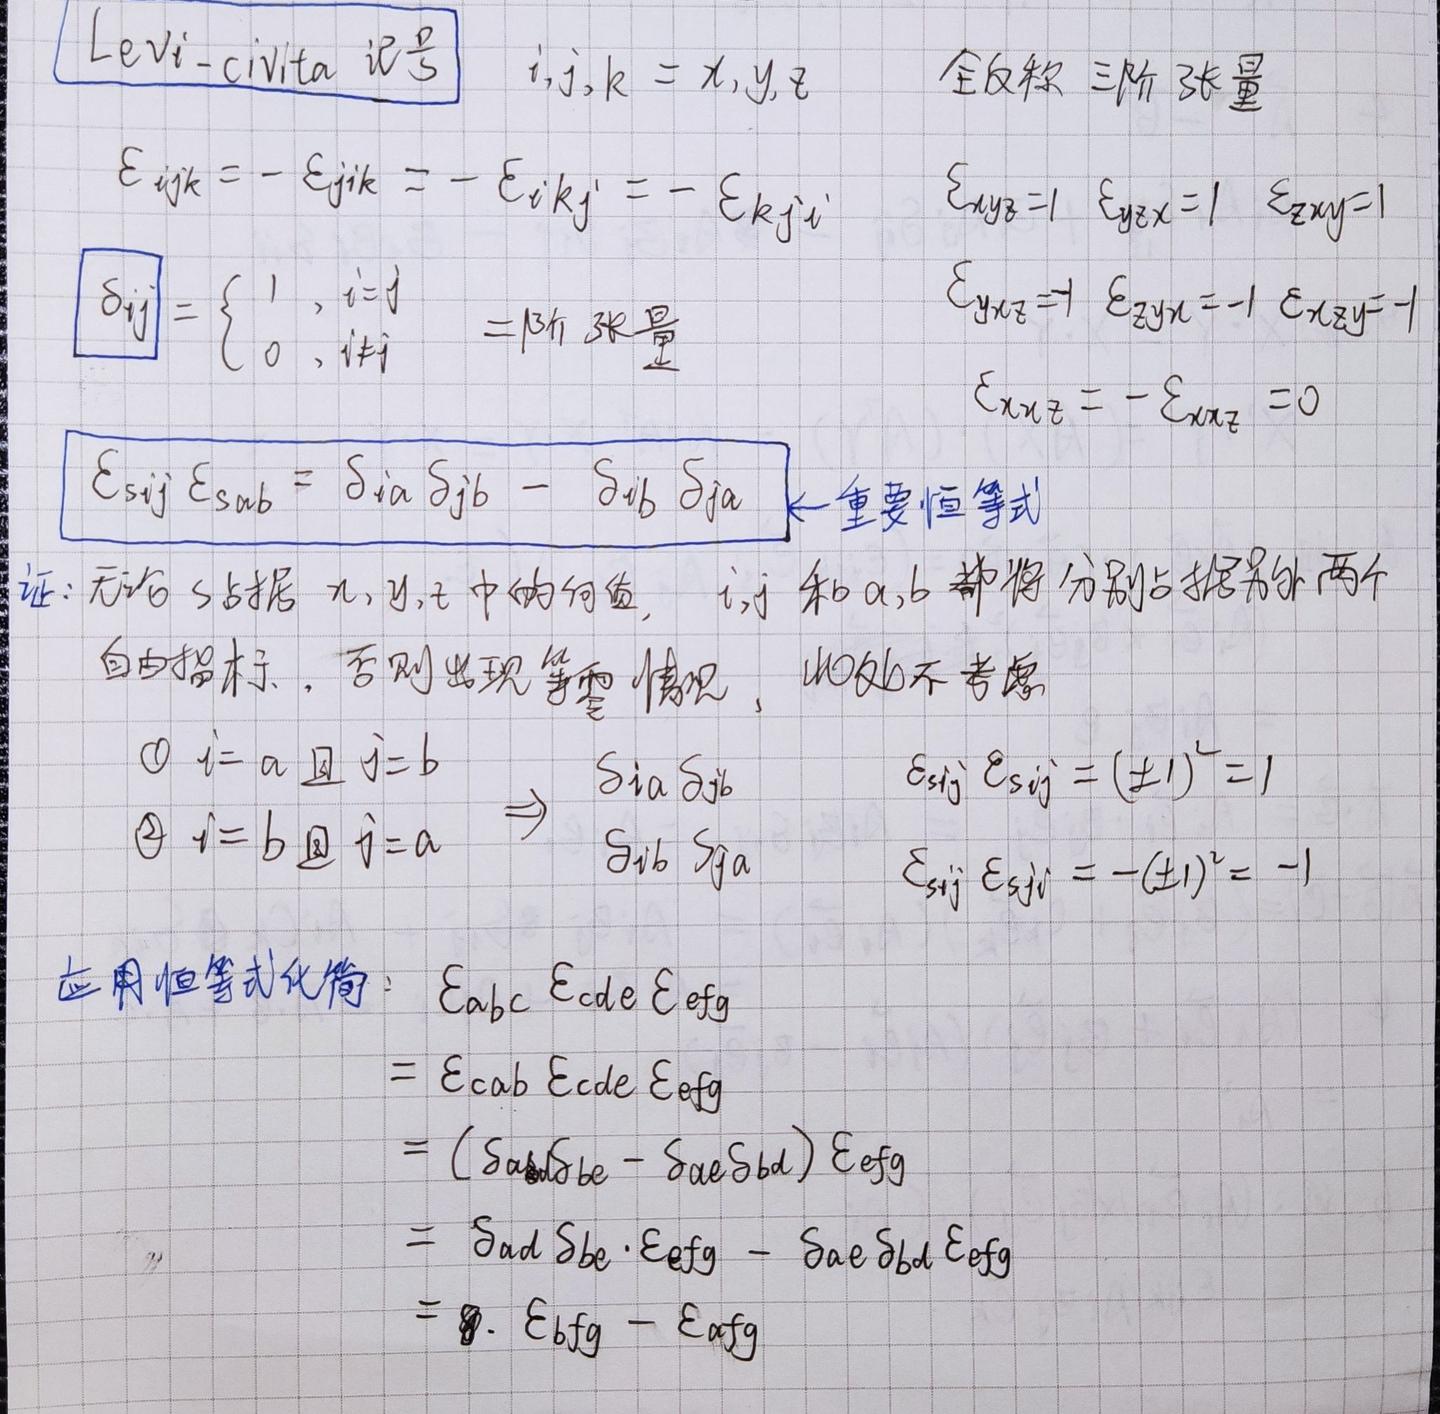 Levi-civita 记号 i,j,k = x,y,z 全反称 三阶 张量
εijk = - εjik = - εikj = - εkji εxyz=1 εyzx=1 εzxy=1
δij = { 1 , i=j 二阶 张量 εyxz=-1 εzyx=-1 εxzy=-1
0 , i≠j
εxxz = - εxxz = 0
εsij εsab = δia δjb - δib δja ← 重要恒等式
证: 无论 s占据 x, y, z 中的何值, i,j 和 a,b 都将 分别占据另外 两个
自由指标, 否则出现 等零 情况, 此处不考虑
① i=a 且 j=b ⇒ δia δjb εsij εsij = (±1)² = 1
② i=b 且 j=a δib δja εsij εsji = -(±1)² = -1
应用恒等式化简: εabc εcde εefg
= εcab εcde εefg
= (δad δbe - δae δbd) εefg
= δad δbe · εefg - δae δbd εefg
= εbfg - εafg